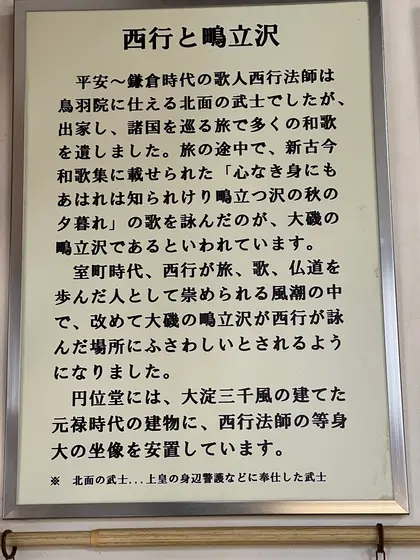 西行と鴫立沢
平安～鎌倉時代の歌人西行法師は
鳥羽院に仕える北面の武士でしたが、
出家し、諸国を巡る旅で多くの和歌
を遺しました。旅の途中で、新古今
和歌集に載せられた「心なき身にも
あはれは知られけり鴫立つ沢の秋の
夕暮れ」の歌を詠んだのが、大磯の
鴫立沢であるといわれています。
室町時代、西行が旅、歌、仏道を
歩んだ人として崇められる風潮の中
で、改めて大磯の鴫立沢が西行が詠
んだ場所にふさわしいとされるよう
になりました。
円位堂には、大淀三千風の建てた
元禄時代の建物に、西行法師の等身
大の坐像を安置しています。
※ 北面の武士...上皇の身辺警護などに奉仕した武士